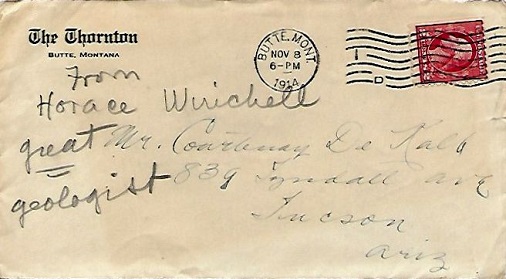 The Thornton
BUTTE, MONTANA
BUTTE, MONT.
NOV 8
6-PM
1914
1
D
From
Horace Winchell
great
geologist
Mr. Courtenay De Kalb
839 Tyndall ave
Tucson
Ariz